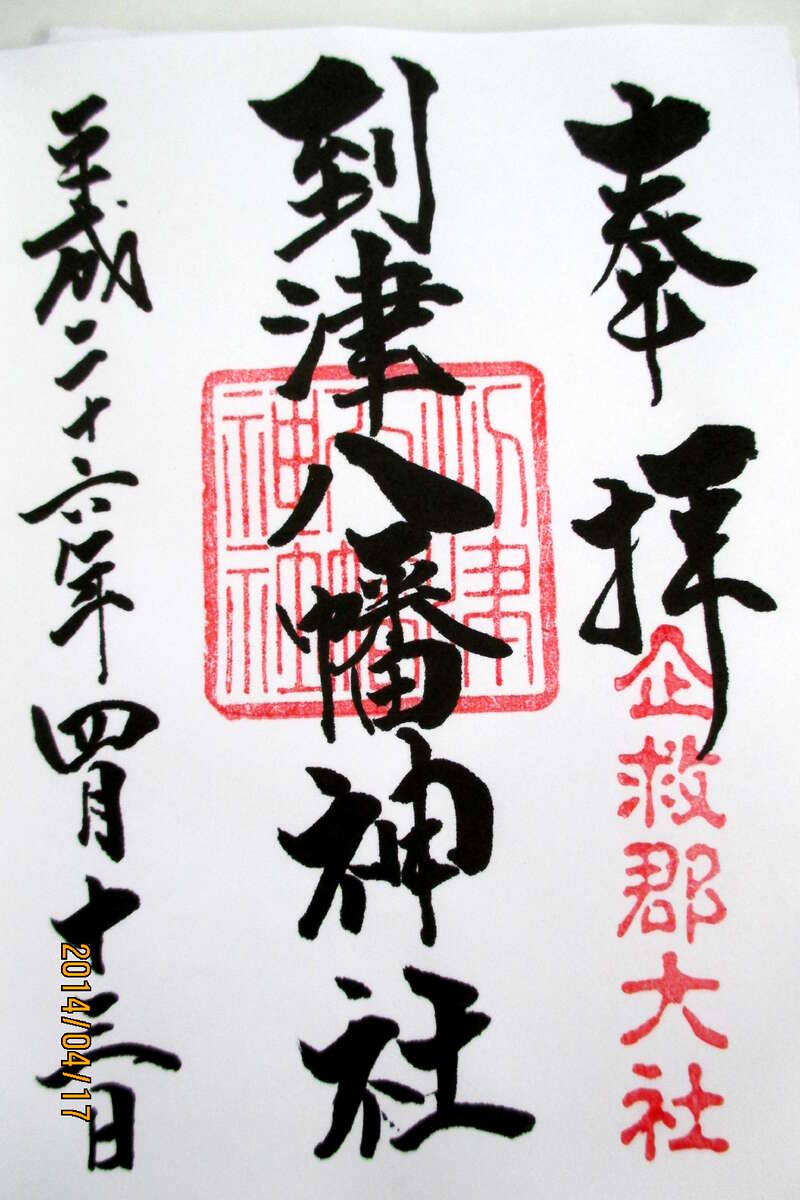 奉拝
企救郡大社
到津八幡神社
平成二十六年四月十三日
2014/04/17